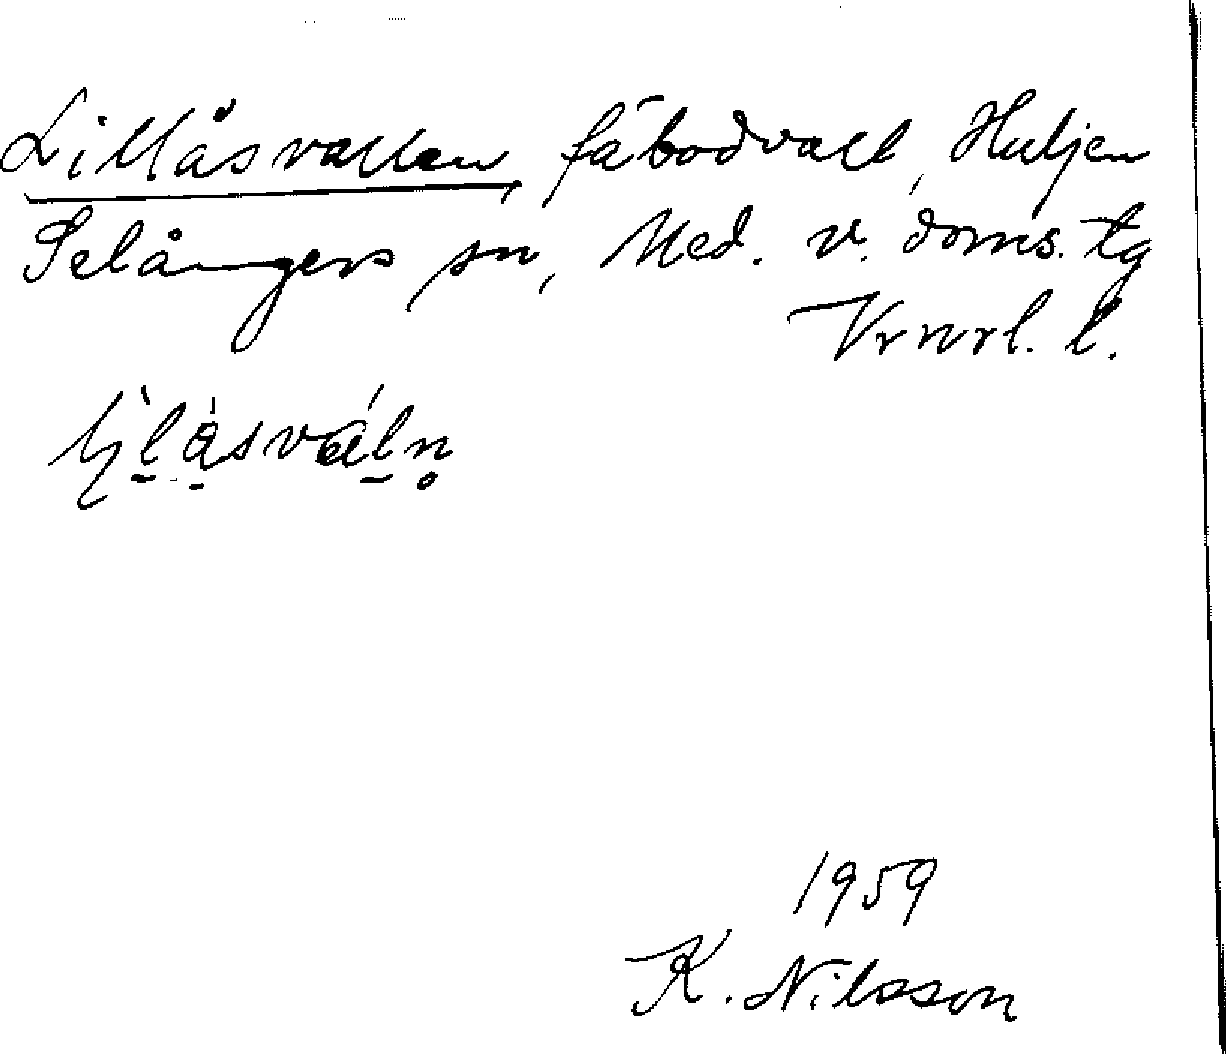 Lillåsvallen, fäbodvall, Huljen
Selångers sn, Med. v. doms. tg
Vrnrl. l.
1959
K. Nilsson